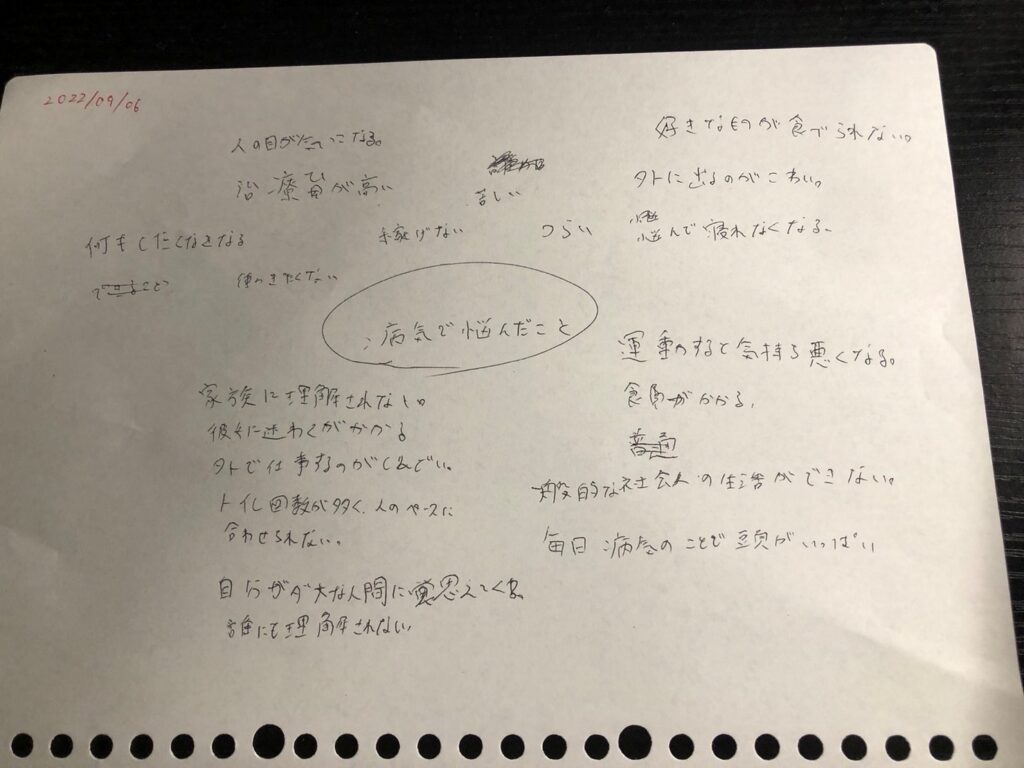 2022/09/06
人の目が気になる。
好きなものが食べられない。
治療費が高い
苦しい
外に出るのがこわい。
何もしたくなくなる
稼げない
つらい
悩んで寝れなくなる。
できること
働きたくない
病気で悩んだこと
運動すると気持ち悪くなる。
家族に理解されない。
食費がかかる。
彼女に迷わくがかかる
普通
外で仕事するのがしんどい。
一般的な社会人の生活ができない。
トイレ回数が多く、人のペースに
合わせられない。
毎日病気のことで頭がいっぱい
自分がダメな人間に思えてくる。
誰にも理解されない。